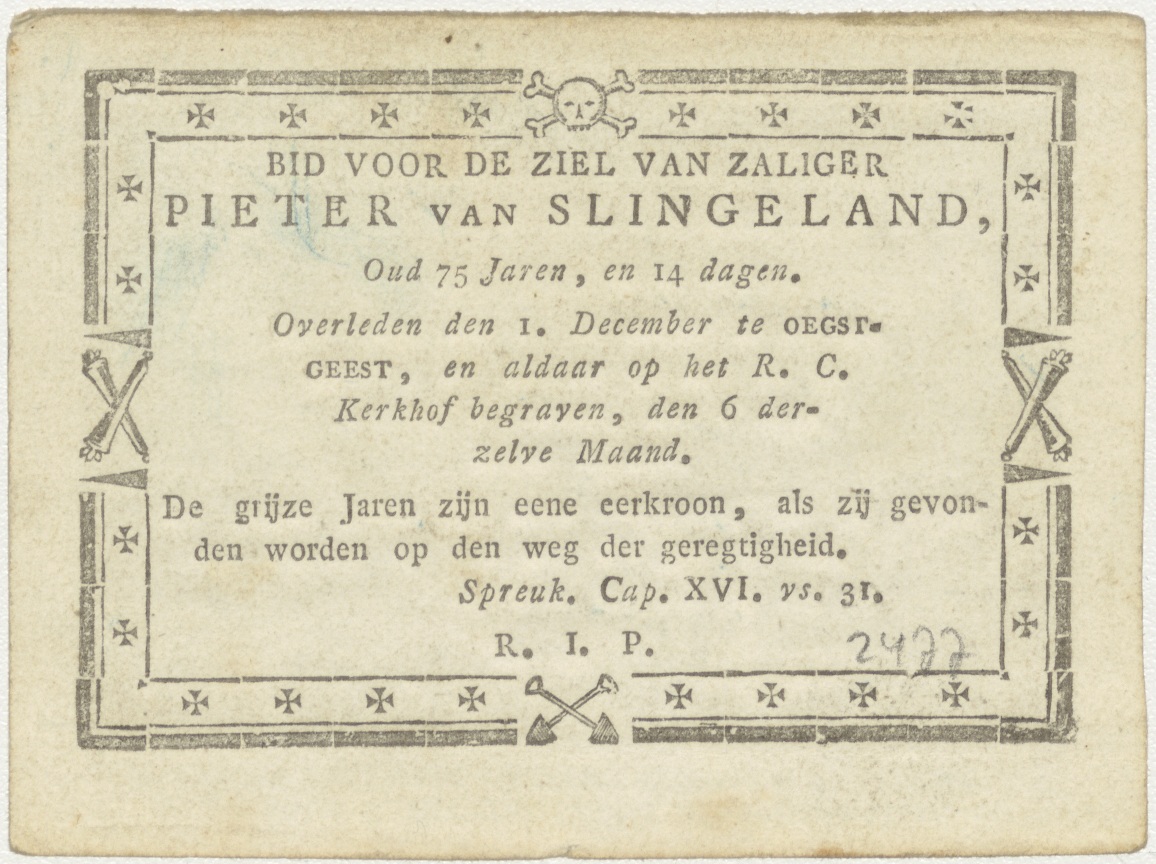 BID VOOR DE ZIEL VAN ZALIGER
PIETER VAN SLINGELAND,
Oud 75 Jaren, en 14 dagen.
Overleden den 1. December te OEGST-
GEEST, en aldaar op het R. C.
Kerkhof begraven, den 6 der-
zelve Maand.
De grijze Jaren zijn eene eerkroon, als zij gevon-
den worden op den weg der geregtigheid.
Spreuk. Cap. XVI. vs. 31.
R. I. P.
2477